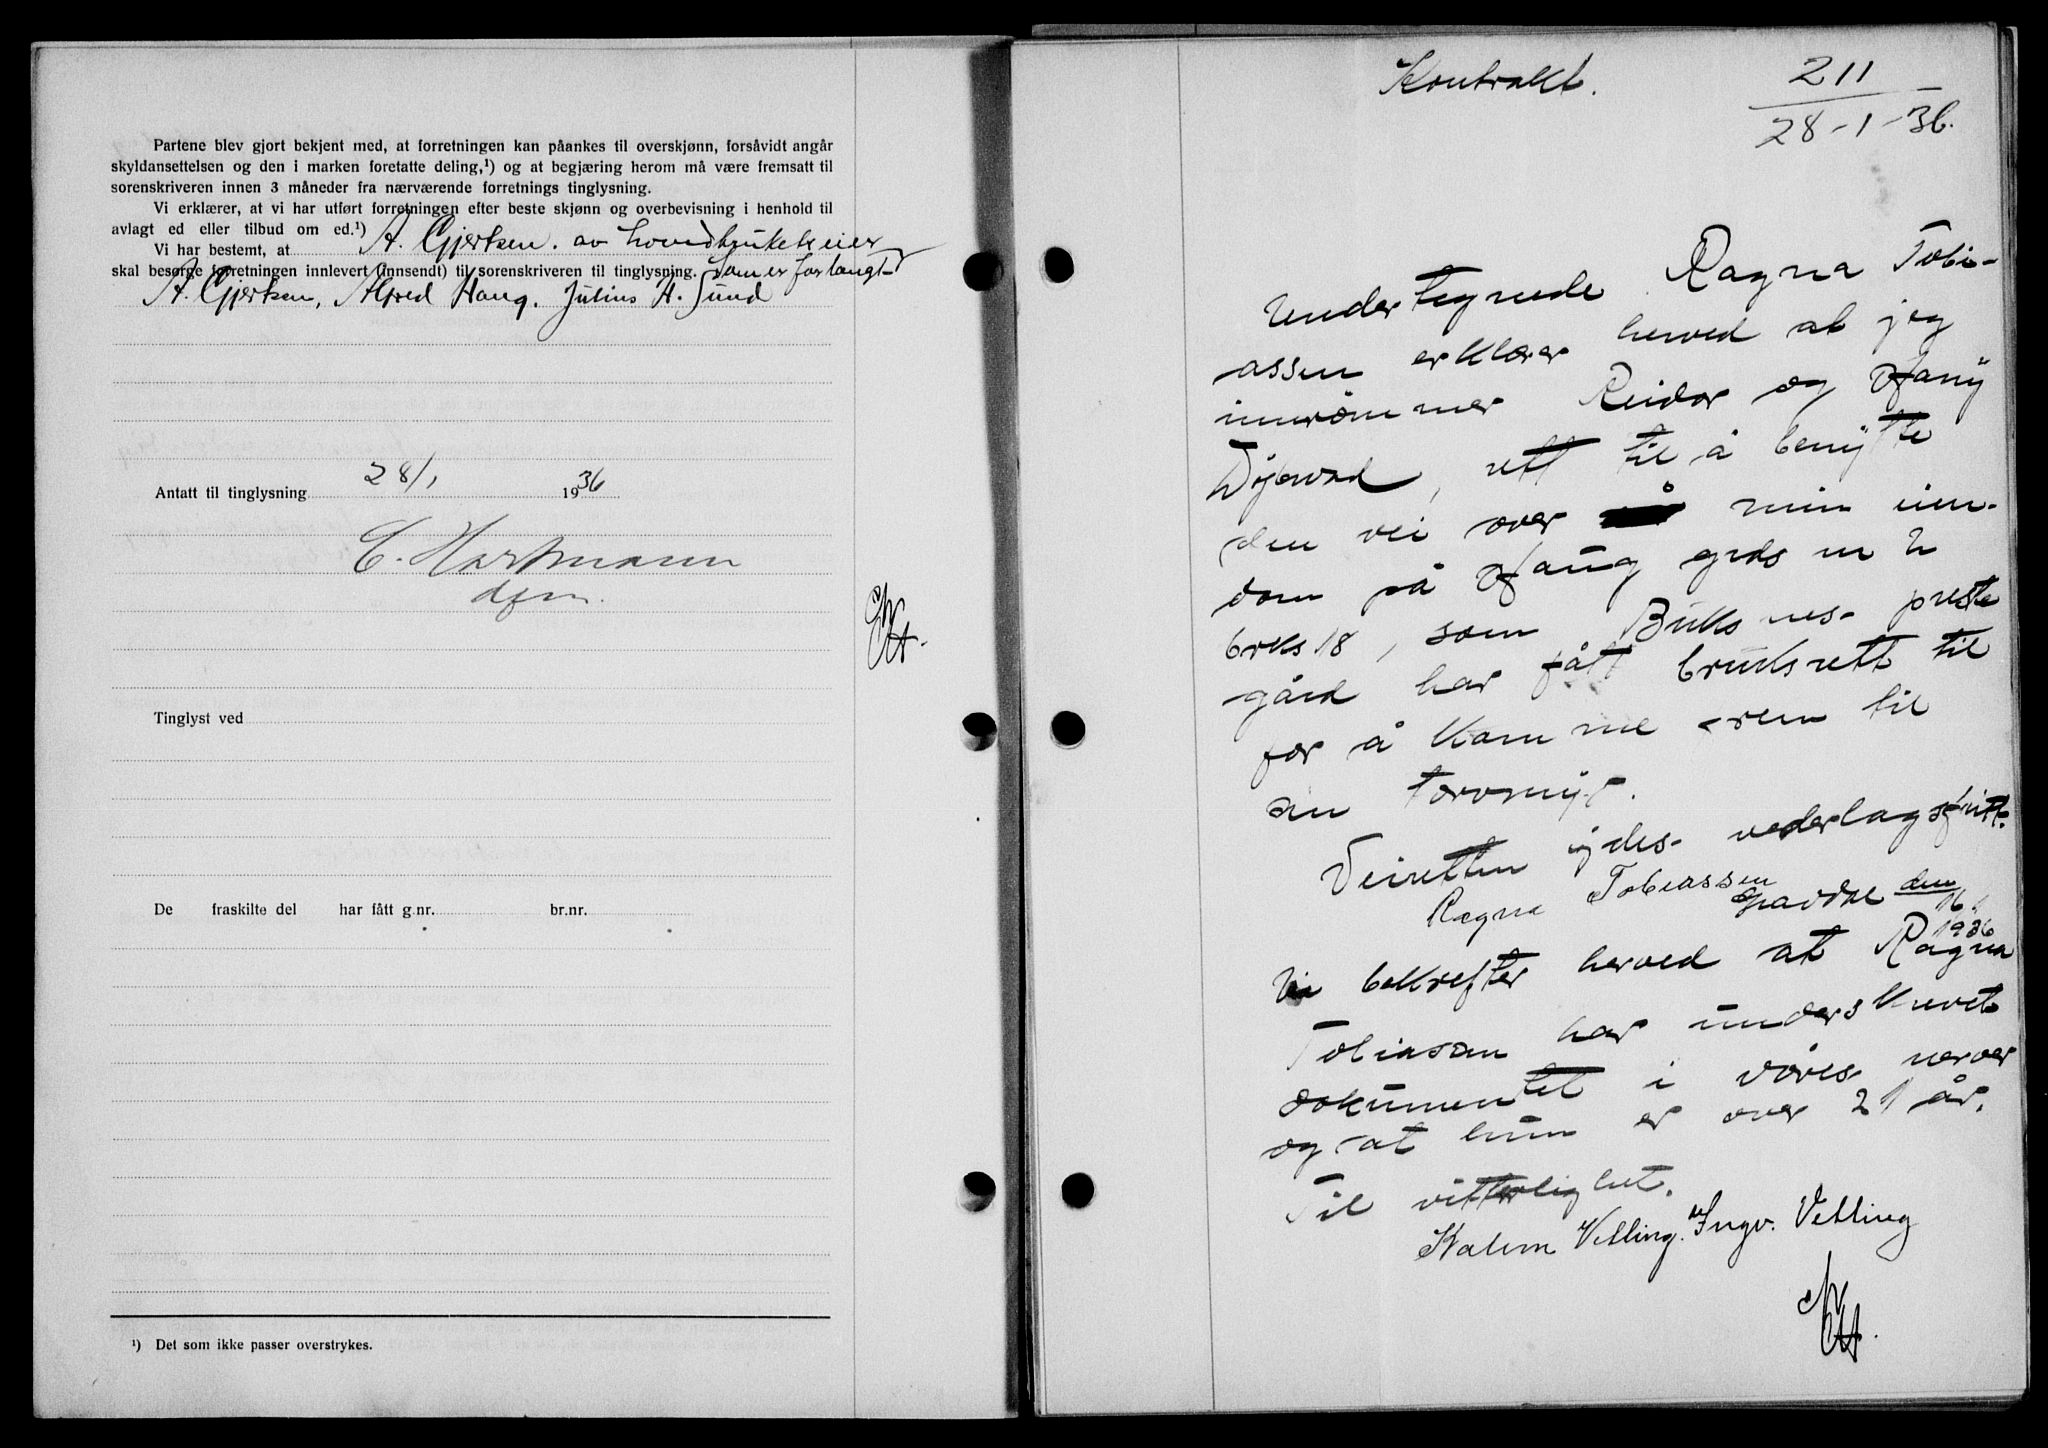 Partene blev gjort bekjent med, at forretningen kan påankes til overskjønn, forsåvidt angår
skyldansettelsen og den i marken foretatte deling,¹) og at begjæring herom må være fremsatt til
sorenskriveren innen 3 måneder fra nærværende forretnings tinglysning.
Vi erklærer, at vi har utført forretningen efter beste skjønn og overbevisning i henhold til
avlagt ed eller tilbud om ed.¹)
Vi har bestemt, at A. Gjertsen. av hovedbrukets eier
skal besørge forretningen innlevert (innsendt) til sorenskriveren til tinglysning. som er forlangt
A. Gjertsen, Alfred Haug. Julius H. Sund
Antatt til tinglysning 28/1 1936
C. Hartmann
dfm.
Tinglyst ved
De fraskilte del har fått g.nr. br.nr.
¹) Det som ikke passer overstrykes.
Kontrakt.
211
28-1-36.
Undertegnede Ragna Tobi-
assen erklærer herved at jeg
innrømmer Reidar og Hany
, rett til å benytte
den vei over min eien-
dom på Haug grds nr 2
brks 18, som Buksnes preste
gård har fått bruksrett til
for å komme frem til
sin torvmyr.
Veiretten ydes vederlagsfritt.
Ragna Tobiassen
Gravdal den 16/1
1936
Vi bekrefter herved at Ragna
Tobiassen har underskrevet
dokumentet i vores nærvær
og at hun er over 21 år.
Til vitterlighet.
Vetting. Ingv. Vetting